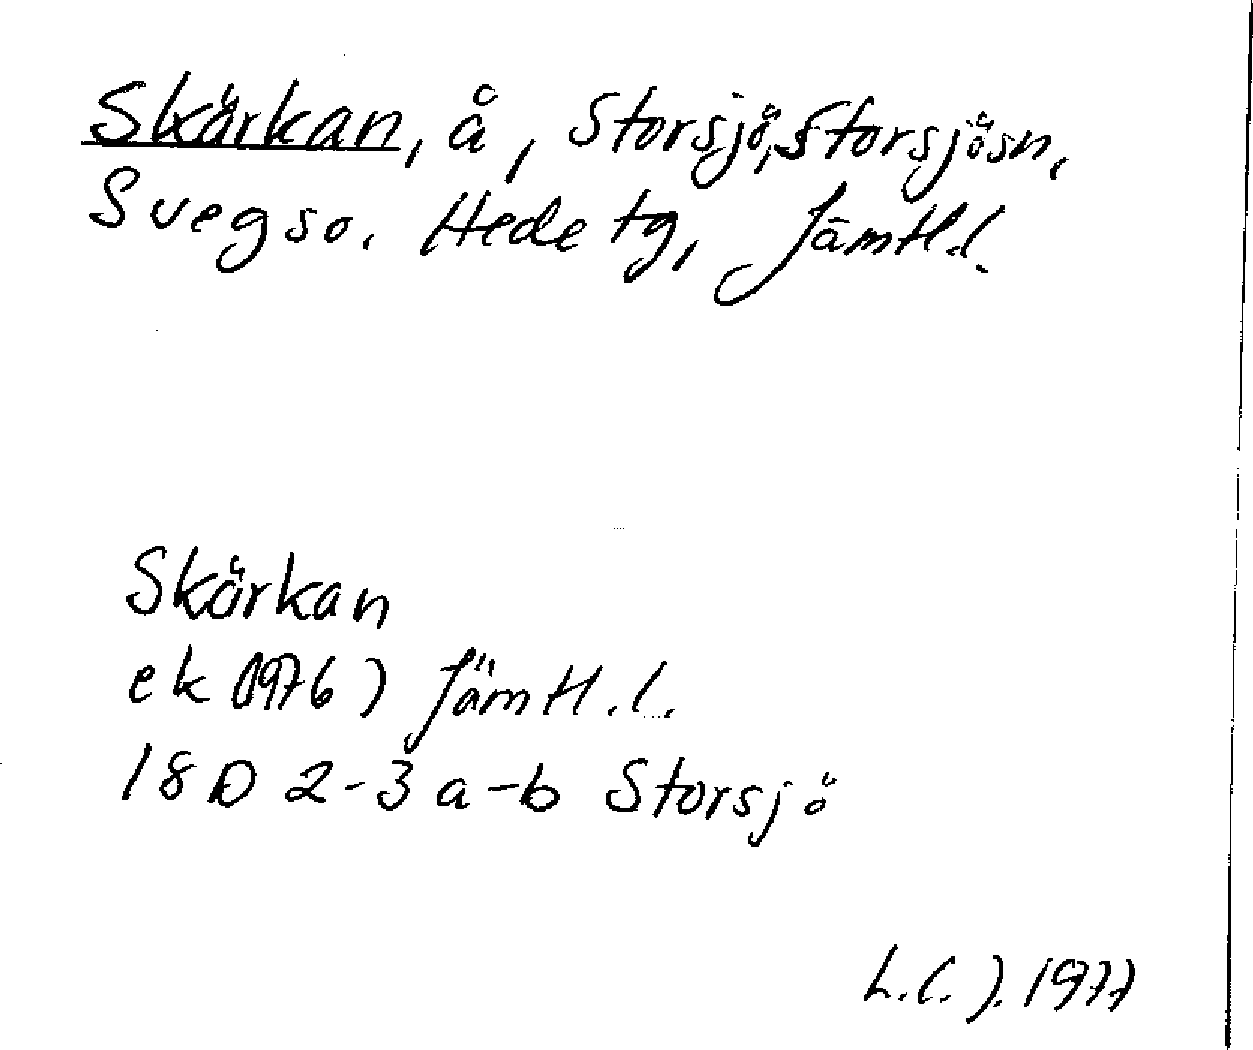 Skärkan, å, Storsjö, Storsjösn,
Svegso. Hede tg, Jämtl.l.
Skärkan
ek (1976) Jämtl.l.
18 D 2-3 a-b Storsjö
L.C.J. 1977